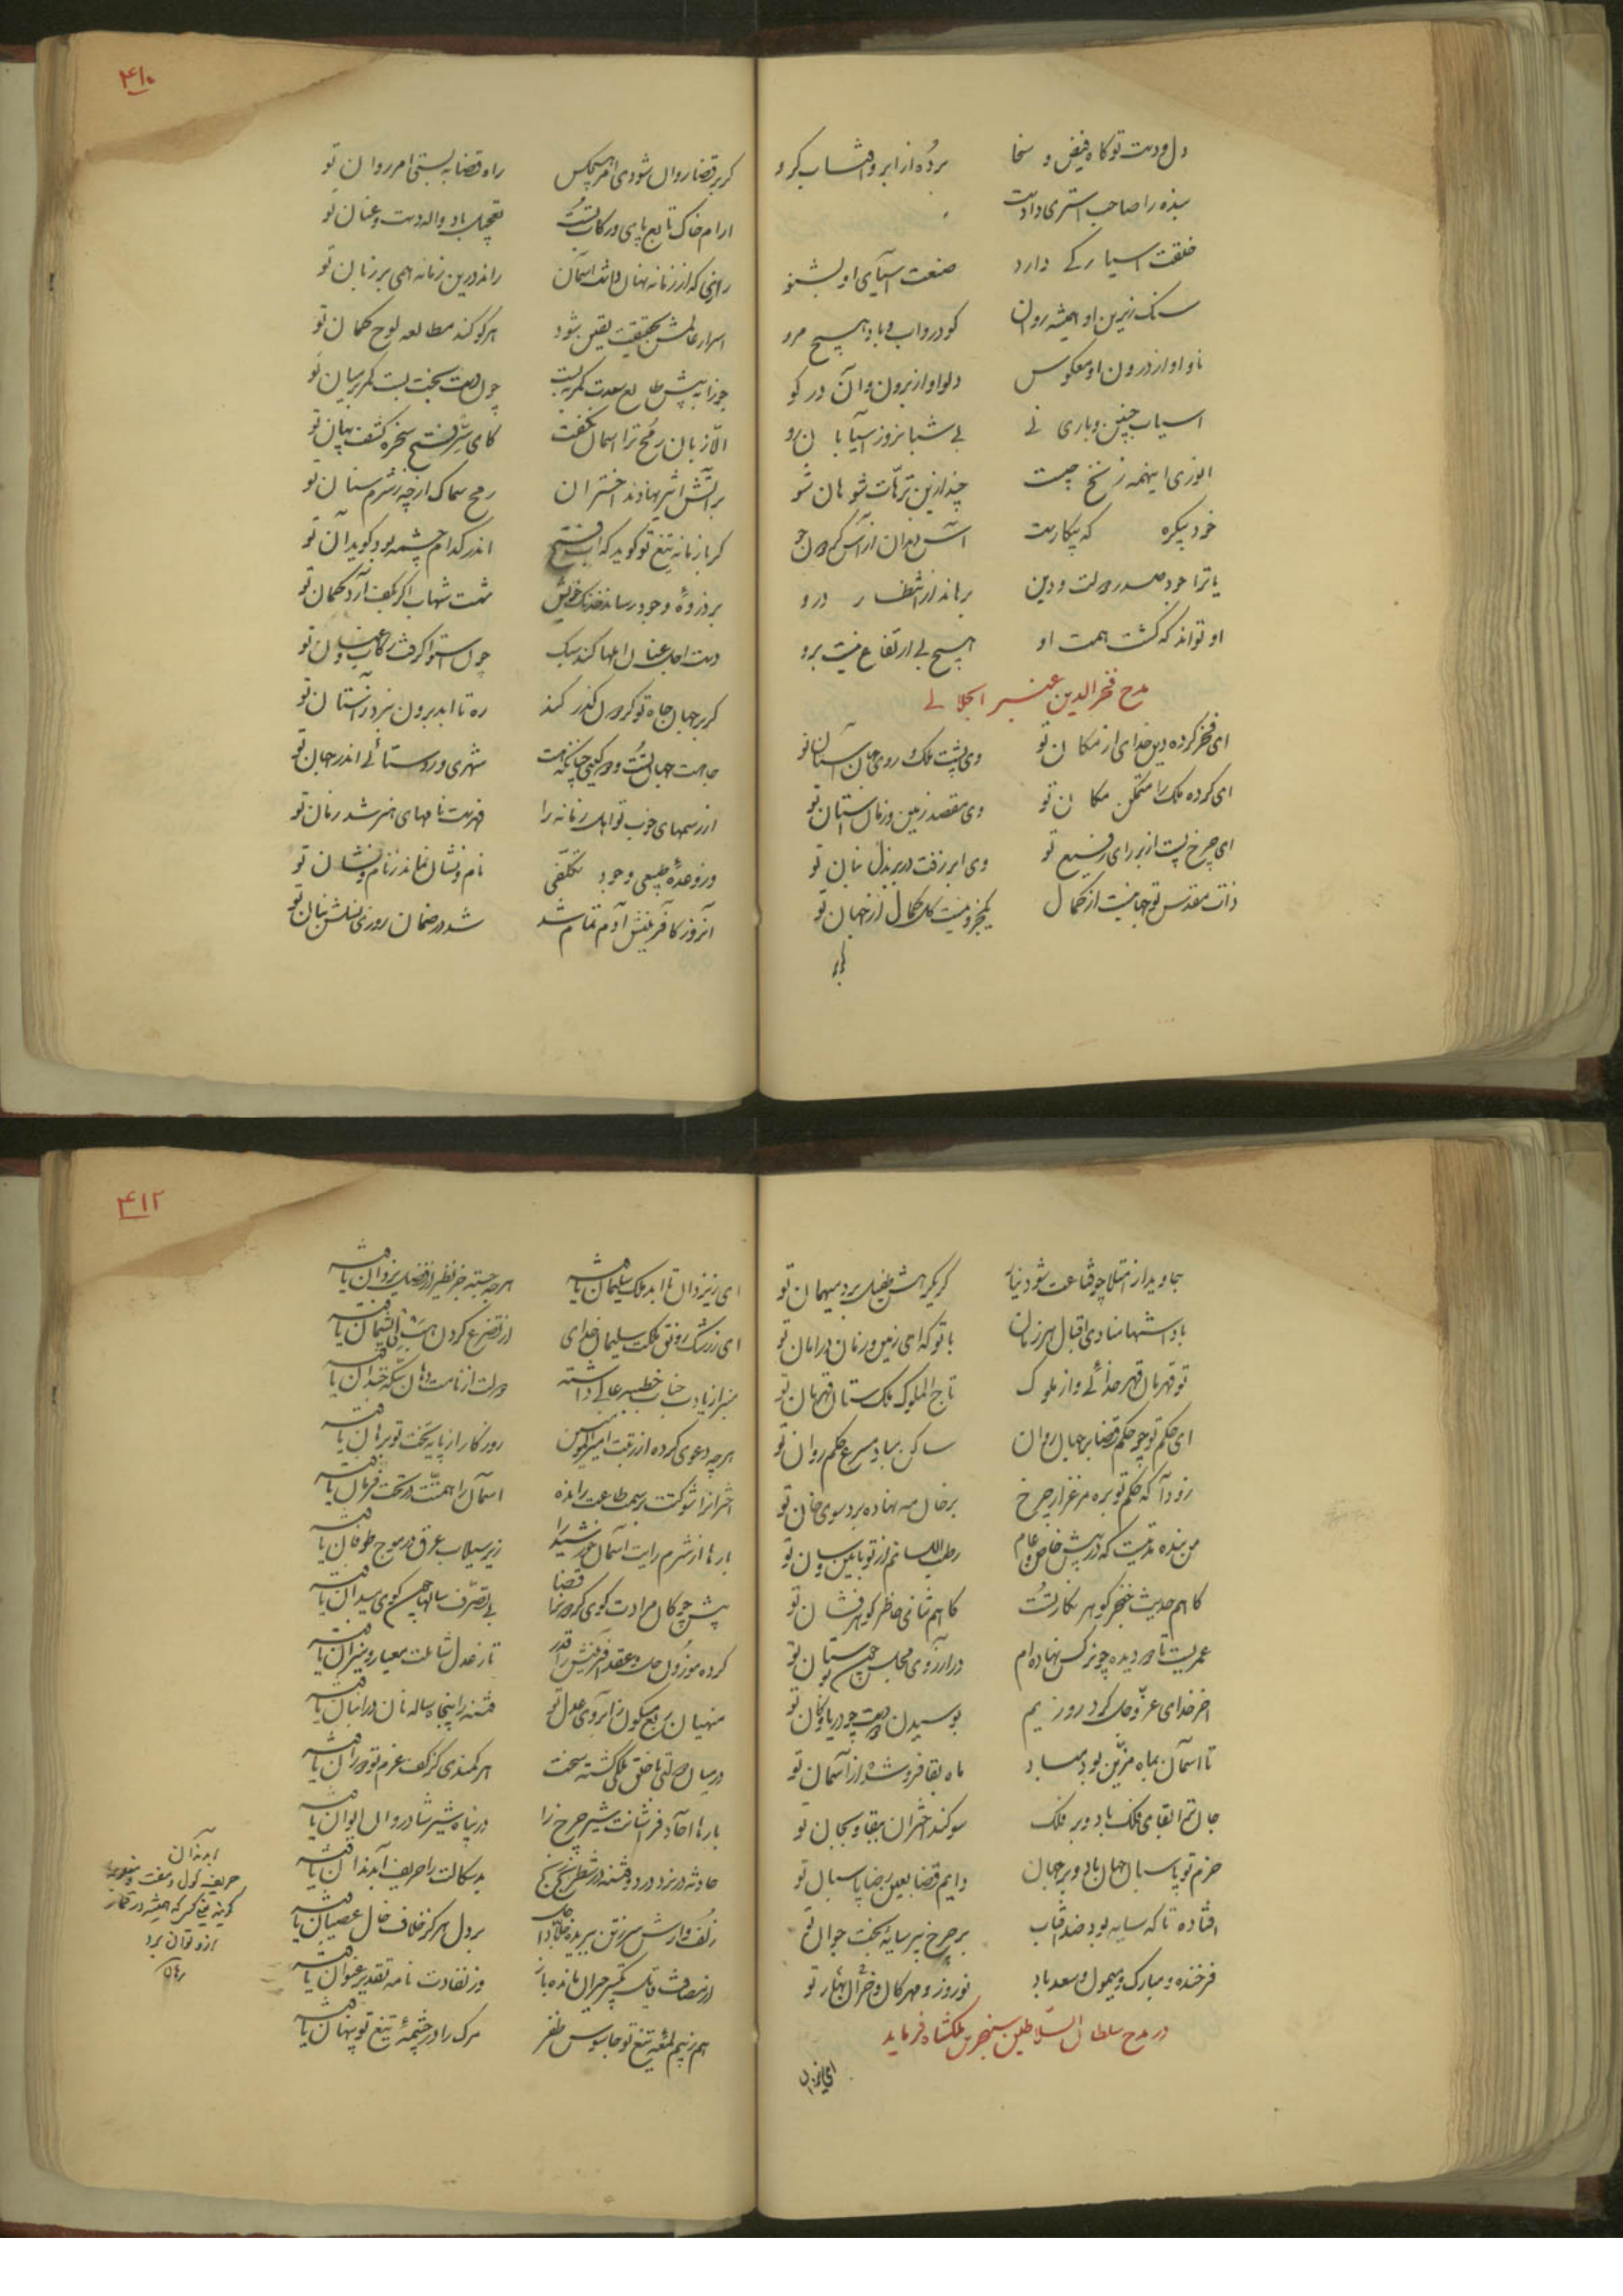 دل و دست تو گاه فیض و سخا برده از ابر و آفتاب گرو
بنده را صاحب استری دادست
خلقت آسیا که دارد صنعت آسیای او بشنو
سنک زیرین او همیشه روان کو در و آب و باد هیچ مرو
ناو او از درون او معکوس دلو او از برون و آن در گو
آسیاب چنین و باری نی بی شبانروز آسیابان رو
انوری اینهمه زنخ چیست چند ازین ترهات شو هان شو
خود پیکره که پیکارست
یا ترا خود صدر دولت و دین برهاند از انتظار درو
او تواند که کشت همت او هیچ بی ارتفاع نیست برو
مدح فخرالدین
ای فخر کرده دین خدای از مکان تو وی پشت ملک و روی جهان آستان تو
ای کرده ملک را متمکن مکان تو وی مقصد زمین و زمان آستان تو
ای چرخ پست از بر رای رفیع تو وی ابر زفت در بر بذل بنان تو
ذات مقدس تو جهانیست از کمال یکجزو نیست کل کمال از جهان تو
۴۱۰
گر بر قضا روان شودی امر هیچکس راه قضا ببستی امر روان تو
آرام خاک تابع پای و رکاب تست تعجیل باد واله دست و عنان تو
رازی که از زمانه نهان داشت آسمان راند درین زمانه همی بر زبان تو
اسرار عالمش بحقیقت یقین شود هر کو کند مطالعه لوح گمان تو
جوزا به پیش طالع سعدت کمر ببست چون دست بخت بست کمر بر میان تو
الا زبان رمح ترا آسمان نگفت کای سر فتح سخره کشف بیان تو
بر آتش اثیر نهادند اختران رمح سماک از چه ز شرم سنان تو
گر با زمانه تیغ تو گوید که آب فتح اندر کدام چشمه بود گوید آن تو
بر ذروه وجود رساند خدنک خویش شست شهاب اگر بکف آرد کمان تو
دست اجل عنان املها کند سبک چون استوا گرفت رکاب و عنان تو
گر بر جهان جاه تو گردون گذر کند ره تا ابد برون نبرد ز آستان تو
جاهت جهان تست و درو گیتی چنانکه هست شهری و روستائی اندر جهان تو
از رسمهای خوب تو اهل زمانه را فهرست نامهای هنر شد زمان تو
ور وعده طبیعی وجود تکلفی نام و نشان نماند ز نام و نشان تو
آنروز کافرینش آدم تمام شد شد در ضمان روزی نسلش بنان تو
جاوید از امتلا چو قناعت شود نیاز گر یکرهش طفیل برد میهمان تو
با داستانها منادی اقبال هر زمان با تو که ای زمین و زمان در امان تو
تو قهرمان قهر خدائی و از ملوک تاج الملوک ملک ستان قهرمان تو
ای حکم تو چو حکم قضا بر جهان روان ساکن مباد مسرع حکم روان تو
زود آ که حکم تو بره مرغزار چرخ بر خوان مه نهاده برد سوی خوان تو
من بنده مدتیست که در پیش خاص و عام رطب اللسانم از تو بیمن بیان تو
گاهم حدیث خنجر گوهر نگار تست گاهم ثنای خاطر گوهر فشان تو
عمریست تا دو دیده چو نرگس نهاده‌ام در آرزوی مجلس چون بوستان تو
آخر خدای عز و جل کرد روزیم بوسیدن دو دست چو دریا و کان تو
تا آسمان بماه مزین بود مباد ماه بقا فرو شده از آسمان تو
جانم بقای فلک باد و بر فلک سوگند اختران ببقا و بجان تو
حزم تو پاسبان جهان باد و بر جهان دایم قضا بعین رضا پاسبان تو
افتاده تا که سایه بود ضد آفتاب بر چرخ پیر سایه بخت جوان تو
فرخنده و مبارک و میمون و سعد باد نوروز و مهرگان و خزان و بهار تو
در مدح سلطان السلاطین سنجر بن ملکشاه فرماید
ای ز یزدان
۴۱۲
ای ز یزدان تا ابد ملک سلیمان یافته هر چه جسته جز نظیر از فضل یزدان یافته
ای ز رشک رونق ملکت سلیمان خدای از تضرع کردن هب لی پشیمان یافته
منبر از یادت جناب خطبه عالی داشته دولت از نامت دهان سکه خندان یافته
هر چه دعوی کرده از رتبت امیرالمؤمنین روزگار از پایه تخت تو برهان یافته
اختران را شوکتت بر سمت طاعت رانده آسمان را همتت در تحت فرمان یافته
بارها از شرم رایت آسمان خورشید را زیر سیلاب عرق در موج طوفان یافته
پیش چوگان مرادت گوی گردون را قضا بی تصرف سالها چون گوی میدان یافته
کرده موزون حل و عقد آفرینش را قدر تا ز عدل شاملت معیار و میزان یافته
منهیان ربع مسکون ز آبروی عدل تو فتنه را پنجاه ساله نان در انبان یافته
در میان دولتی با خلق ملکی گشته سخت هر کمندی کز کف عزم تو دوران یافته
بارها آحاد فراشانت شیر چرخ را در پناه شیر شادروان ایوان یافته
حادثه در نرد درد و فتنه در شطرنج رنج بدسگالت را حریف آبدندان یافته
زلف وارش سر ز تن ببریده جلاد اجل بر دل هر که ز خلافت خال عصیان یافته
از مصافت قابل تکبیر حیران مانده باز وز نفاذت نامه تقدیر عنوان یافته
هم ز بیم لمعه تیغ تو جاسوس ظفر مرک را در چشمه تیغ تو پنهان یافته
آبدندان
حریف گول و مفت
که همیشه در قمار
ازو توان برد
برهان